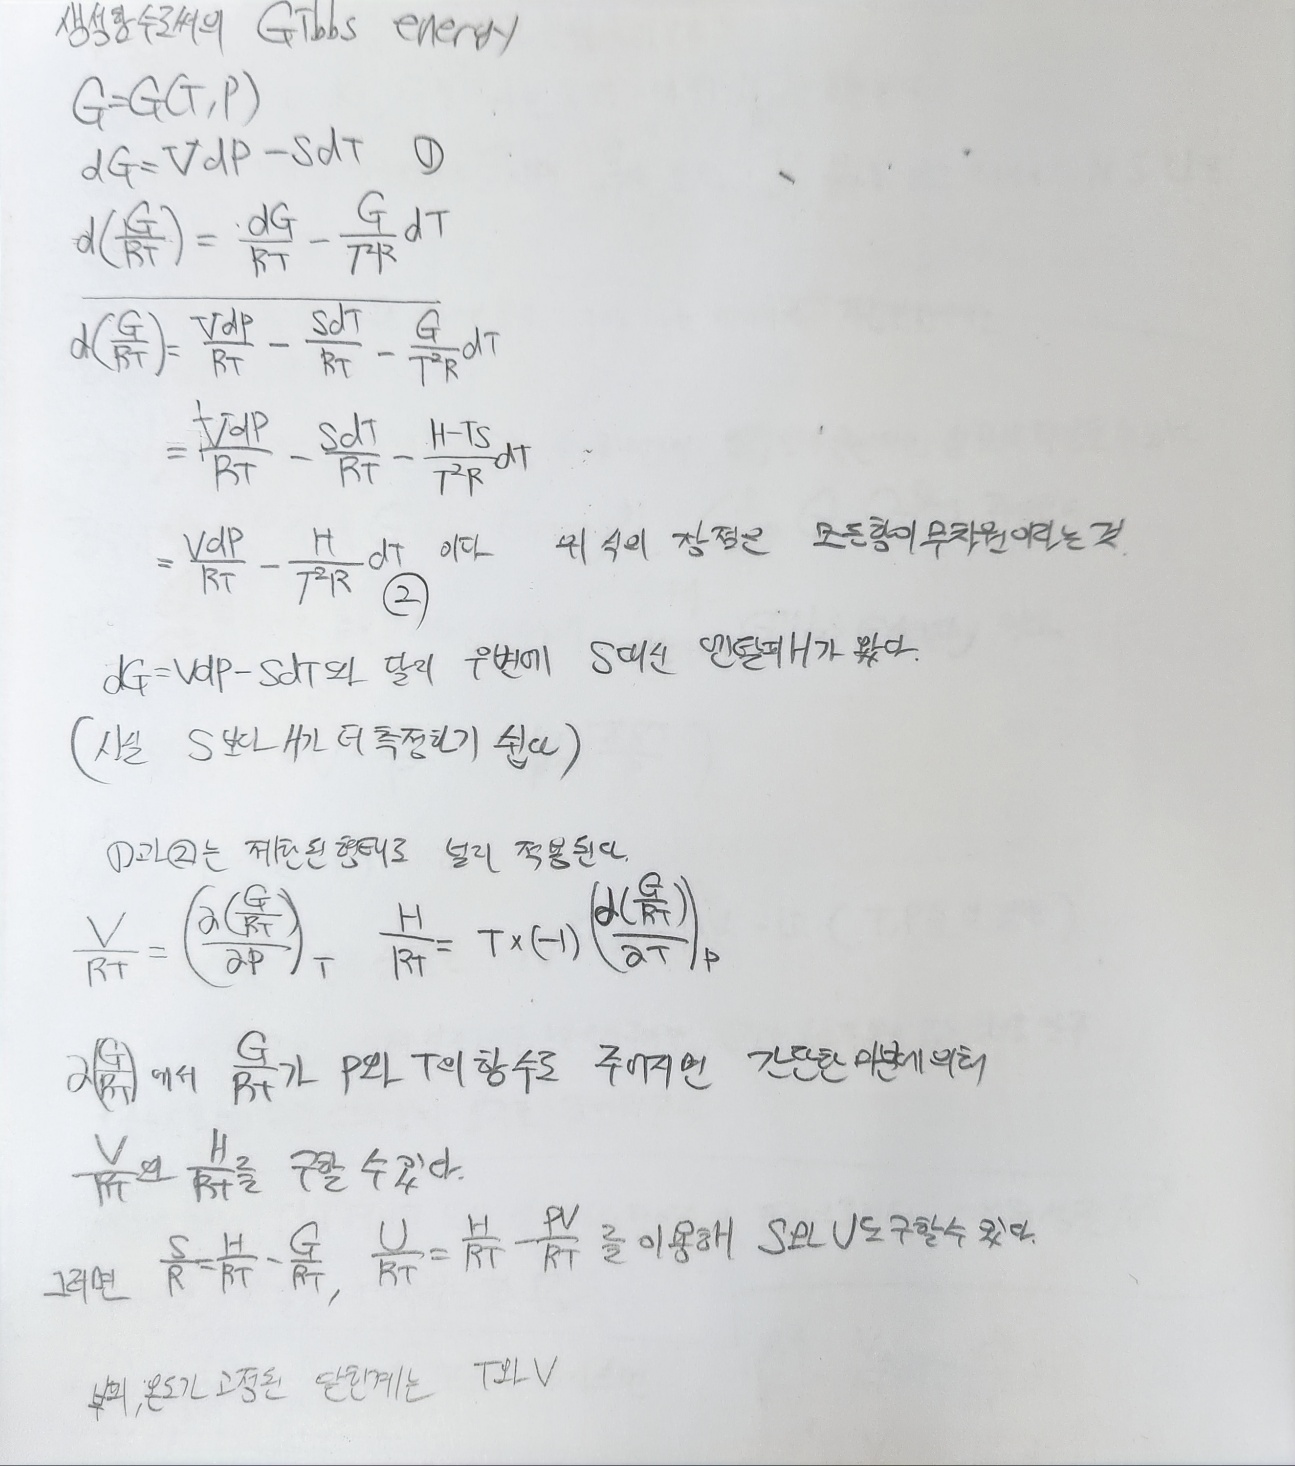 생성함수로써의 Gibbs energy
G=G(T,P)
dG=VdP-SdT ①
d(G/RT) = dG/RT - G/T²R dT
d(G/RT) = VdP/RT - SdT/RT - G/T²R dT
= VdP/RT - SdT/RT - H-TS/T²R dT
= VdP/RT - H/T²R dT 이다 위 식의 장점은 모든항이 무차원이라는 것.
②
dG=VdP-SdT와 달리 우변에 S대신 엔탈피H가 왔다.
(사실 S보다 H가 더 측정하기 쉽다)
①과②는 제한된형태로 널리 적용된다.
V/RT = (∂(G/RT)/∂P)T H/RT = T×(-1)(∂(G/RT)/∂T)P
∂(G/RT)에서 G/RT가 P와 T의 함수로 주어지면 간단한 미분에 의해
V/RT와 H/RT를 구할 수 있다.
그러면 S/R=H/RT-G/RT, U/RT=H/RT-PV/RT를 이용해 S와 U도 구할수 있다.
부피,온도가 고정된 닫힌계는 T와 V